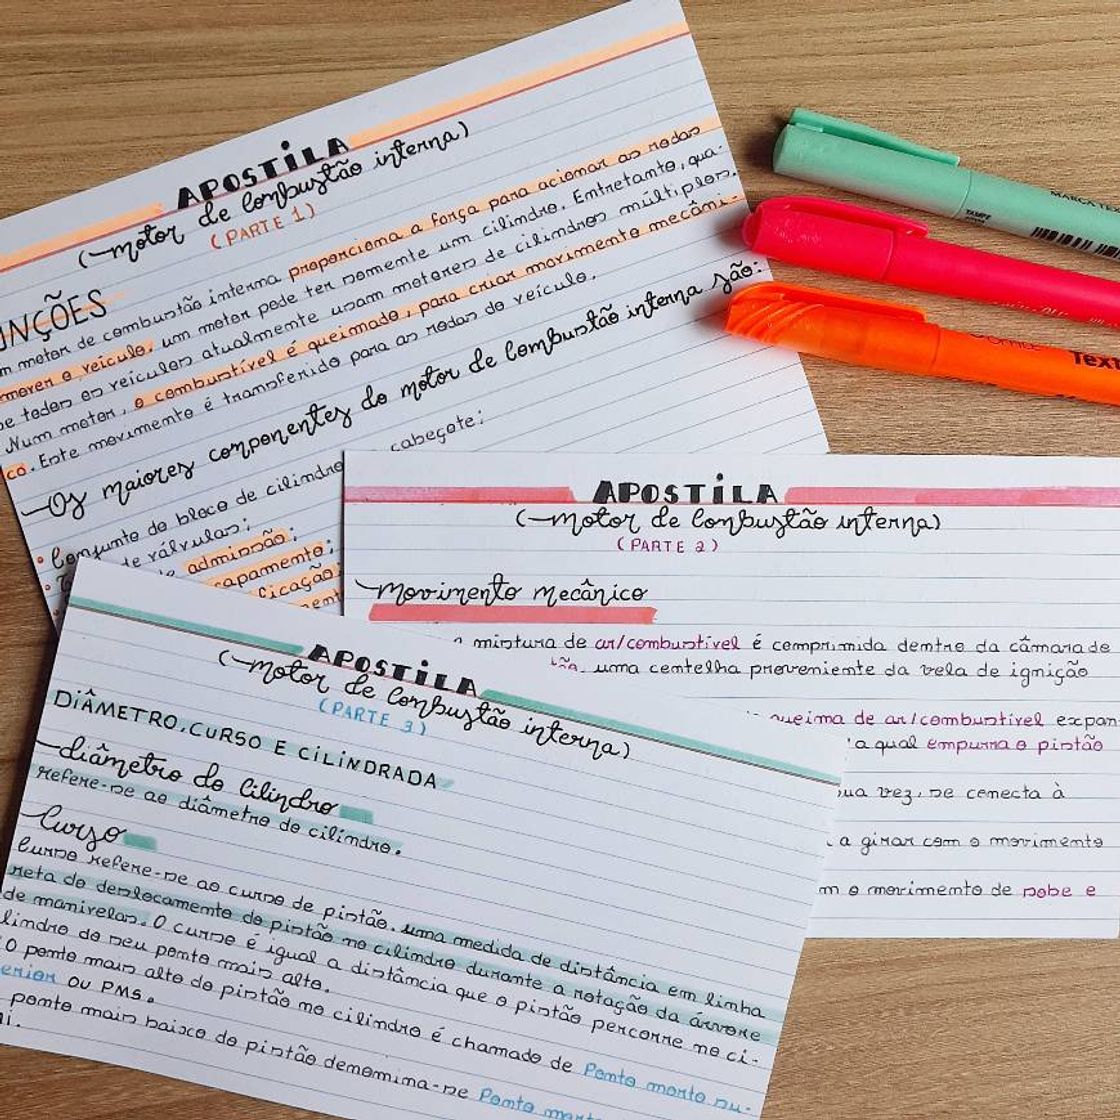 APOSTILA
(motor de combustão interna)
(PARTE 1)
motor de combustão interna proporciona a força para acionar as rodas
mover o veículo. um motor pode ter somente um cilindro. Entretanto, qua-
todos os veículos atualmente usam motores de cilindros múltiplos.
Num motor, o combustível é queimado, para criar movimento mecâni-
co. Este movimento é transferido para as rodas do veículo.
Os maiores componentes do motor de combustão interna são:
• Conjunto do bloco de cilindro cabeçote;
de válvulas;
admissão;
APOSTILA
(motor de combustão interna)
(PARTE 2)
movimento mecânico
mistura de ar/combustível é comprimida dentro da câmara de
uma centelha proveniente da vela de ignição
queima de ar/combustível expan-
a qual empurra o pistão
sua vez, se conecta à
a girar com o movimento
o movimento de sobe e
APOSTILA
(motor de combustão interna)
(PARTE 3)
DIÂMETRO, CURSO E CILINDRADA
diâmetro do cilindro
refere-se ao diâmetro do cilindro.
Curso
Curso refere-se ao curso de pistão, uma medida de distância em linha
reta do deslocamento do pistão no cilindro durante a rotação da árvore
de manivelas. O curso é igual a distância que o pistão percorre no ci-
lindro do seu ponto mais alto.
O ponto mais alto do pistão no cilindro é chamado de Ponto morto su-
perior ou PMS.
ponto mais baixo do pistão denomina-se Ponto morto
MARCA TEXTO
Text